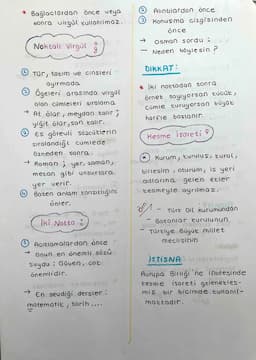 * Bağlaçlardan önce veya
sonra virgül kullanılmaz.
Noktalı Virgül ;
① Tür, takım ve cinsleri
ayırmada
② Ögeleri arasında virgül
olan cümleleri sıralama
→ At ölür, meydan kalır ;
yiğit ölür, şan kalır.
③ Eş görevli sözcüklerin
sıralandığı cümlede
özneden sonra.
→ Roman ; yer, zaman,
mekan gibi unsurlara
yer verir.
④ önler.
İki Nokta :
① Açıklamalardan önce
→ Onun en önemli sözü
şuydu : Güven, çok
önemlidir.
→ En sevdiği dersler :
matematik, tarih ....
② Alıntılardan önce
③ Konuşma çizgisinden
önce
→ Osman sordu :
— Neden böylesin ?
DİKKAT :
* İki noktadan sonra
örnek sayıyorsan küçük,
cümle kuruyorsan büyük
harfle başlanır.
Kesme İşareti '
* Kurum, kuruluş, kurul,
birleşim, oturum, iş yeri
adlarına gelen ekler
kesmeyle ayrılmaz.
- Türk Dil Kurumundan
- Bakanlar Kurulunun
- Türkiye Büyük Millet
Meclisinin
İSTİSNA
Avrupa Birliği'ne ifadesinde
kesme işareti gelenekleş-
miş bir biçimde kullanıl-
maktadır.